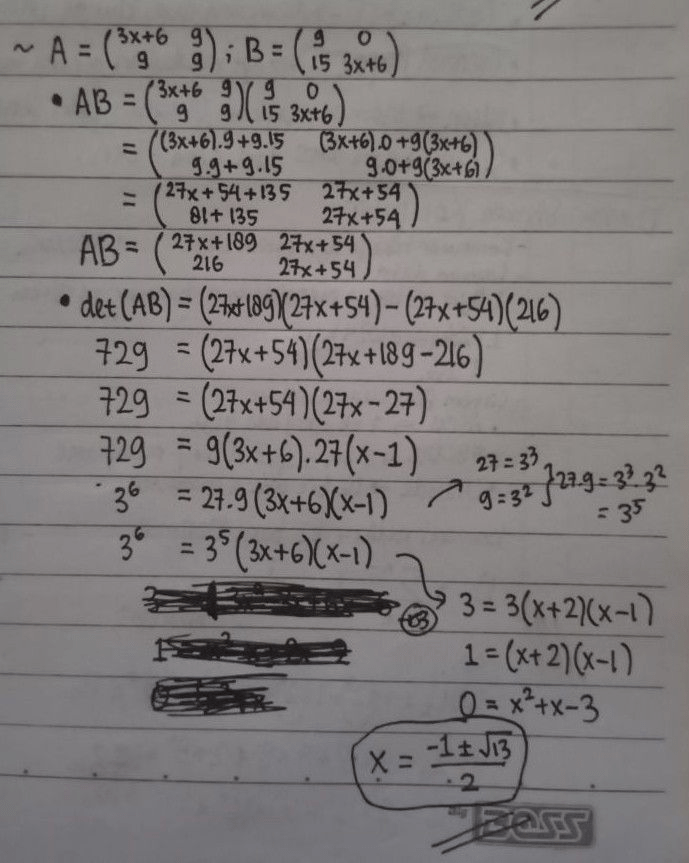 ~ A = (3x+6 9 9 9) ; B = (9 0 15 3x+6)
• AB = (3x+6 9 9 9)(9 0 15 3x+6)
= ((3x+6).9+9.15 (3x+6).0+9(3x+6) 9.9+9.15 9.0+9(3x+6))
= (27x+54+135 27x+54 81+135 27x+54)
AB = (27x+189 27x+54 216 27x+54)
• det(AB) = (27x+189)(27x+54)-(27x+54)(216)
729 = (27x+54)(27x+189-216)
729 = (27x+54)(27x-27)
729 = 9(3x+6).27(x-1)
3⁶ = 27.9(3x+6)(x-1)
27 = 3³
9 = 3² } 27.9 = 3³.3²
= 3⁵
3⁶ = 3⁵(3x+6)(x-1)
3 = 3(x+2)(x-1)
1 = (x+2)(x-1)
0 = x²+x-3
x = (-1±√13)/2
BOSS